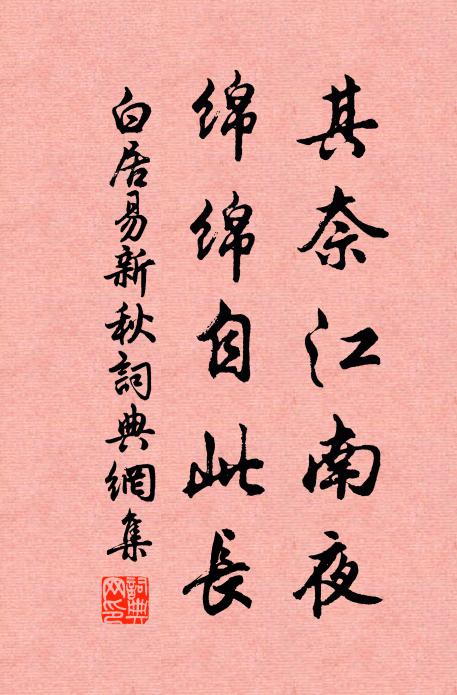 其奈江南夜
綿綿自此長
白居易新秋詞典網集
詞典网印